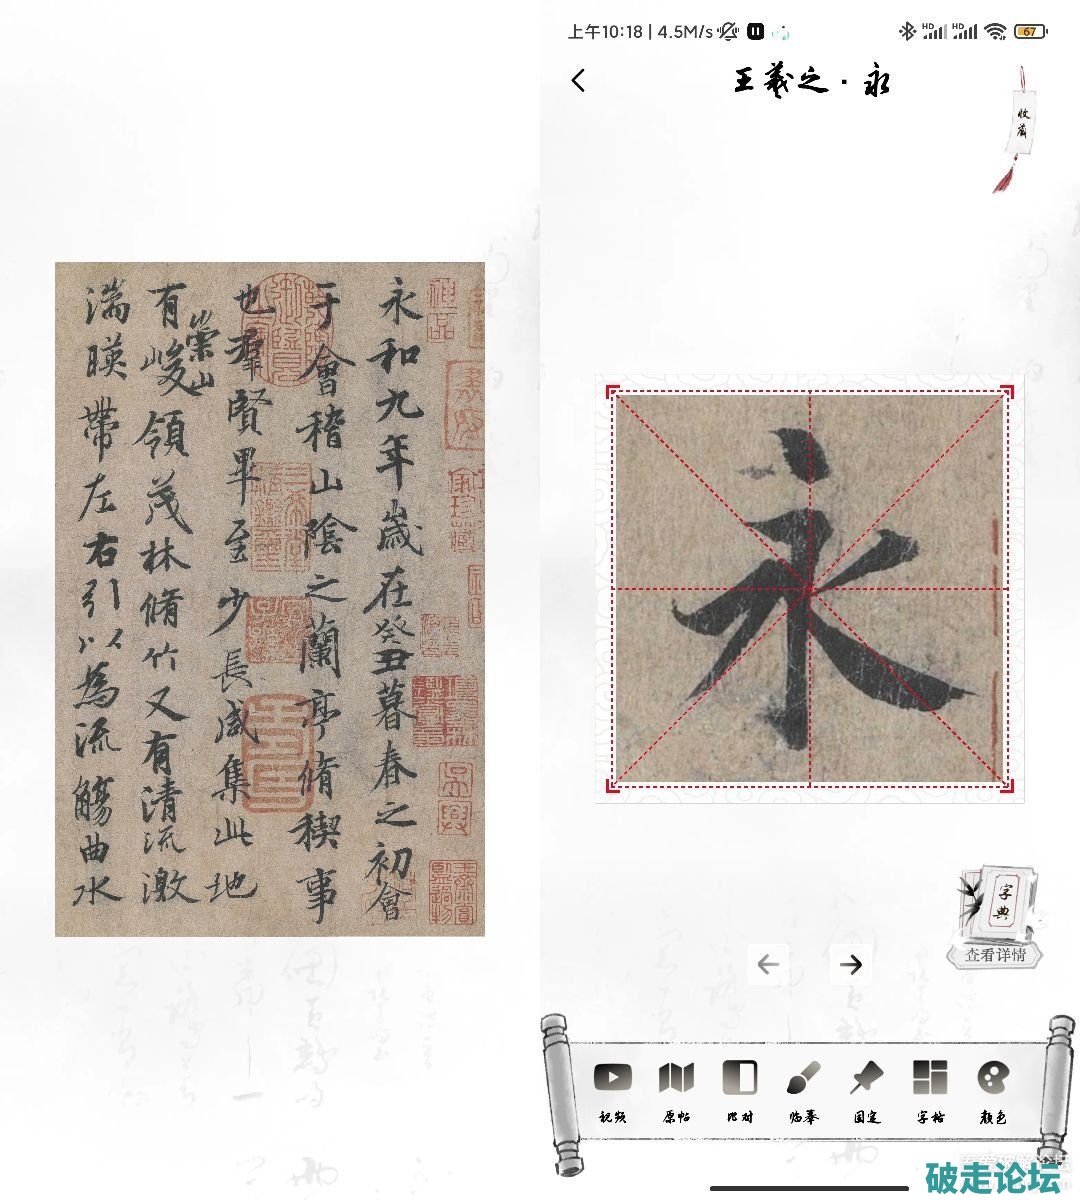 永和九年歲在癸丑暮春之初會
于會稽山陰之蘭亭脩稧事
也羣賢畢至少長咸集此地
有崇山峻領茂林脩竹又有清流激
湍暎帶左右引以為流觴曲水
上午10:18 | 4.5M/s
67
王羲之·永
收藏
永
字典
查看详情
视频
原帖
比对
临摹
固定
字帖
颜色
破走论坛